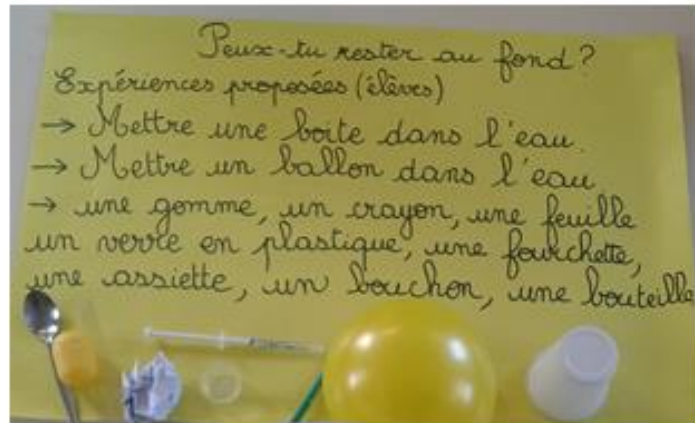 Peux-tu rester au fond ?
Expériences proposées (élèves)
→ Mettre une boite dans l'eau.
→ Mettre un ballon dans l'eau
→ une gomme, un crayon, une feuille
un verre en plastique, une fourchette,
une assiette, un bouchon, une bouteille